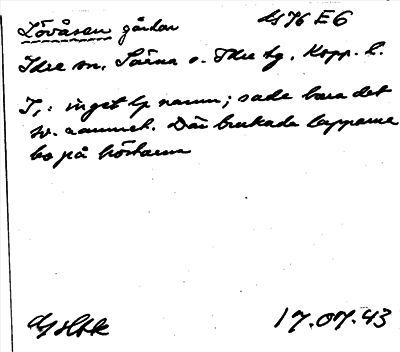 Lövåsen gårdar G 76 E6
Idre sn. Särna o. Idre tg. Kopp. l.
J.: inget lp namn; sade bara det
sv. namnet. Där brukade lapparna
bo på höstarna
17.07.43